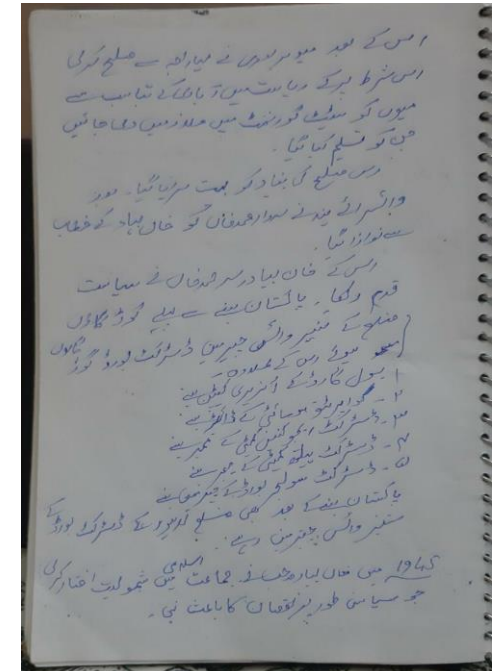 اس کے بعد میو سرداروں نے مہاراجہ سے صلح کر لی
اس شرط پر کہ ریاست میں آبادی کے تناسب سے
میوں کو سٹیٹ گورنمنٹ میں ملازمیں دی جائیں
جن کو تسلیم کیا گیا۔
اس صلح کی بنیاد کو بہت سراہا گیا۔ اور
وائسرائے ہند نے سردار محمد خاں کو خان بہادر کے خطاب
سے نوازا گیا۔
اس کے خان بہادر سردار محمد خاں نے سیاست
قدم رکھا۔ پاکستان بننے سے پہلے گوڑ گاؤں
ضلع کے سنیر وائس چیرمین ڈسٹرکٹ بورڈ گوڑ گاؤں
ہوئے اس کے علاوہ۔
۱ سول گارڈ کے آنریری کیپٹن بنے
۲۔ کواپریٹو سوسائٹی کے ڈائریکٹر بنے
۳۔ ڈسٹرکٹ ایجوکیشن کمیٹی کے ممبر بنے
۴۔ ڈسٹرکٹ ہیلتھ کمیٹی کے ممبر بنے
۵۔ ڈسٹرکٹ سولجر بورڈ کے بنے
پاکستان بننے کے بعد بھی ضلع لاہور کے ڈسٹرکٹ بورڈ کے
سنیر وائس چیرمین رہے۔
میں خان بہادر صاحب نے جماعت اسلامی میں شمولیت اختیار کر لی
جو سیاسی طور پر نقصان کا باعث بنی۔